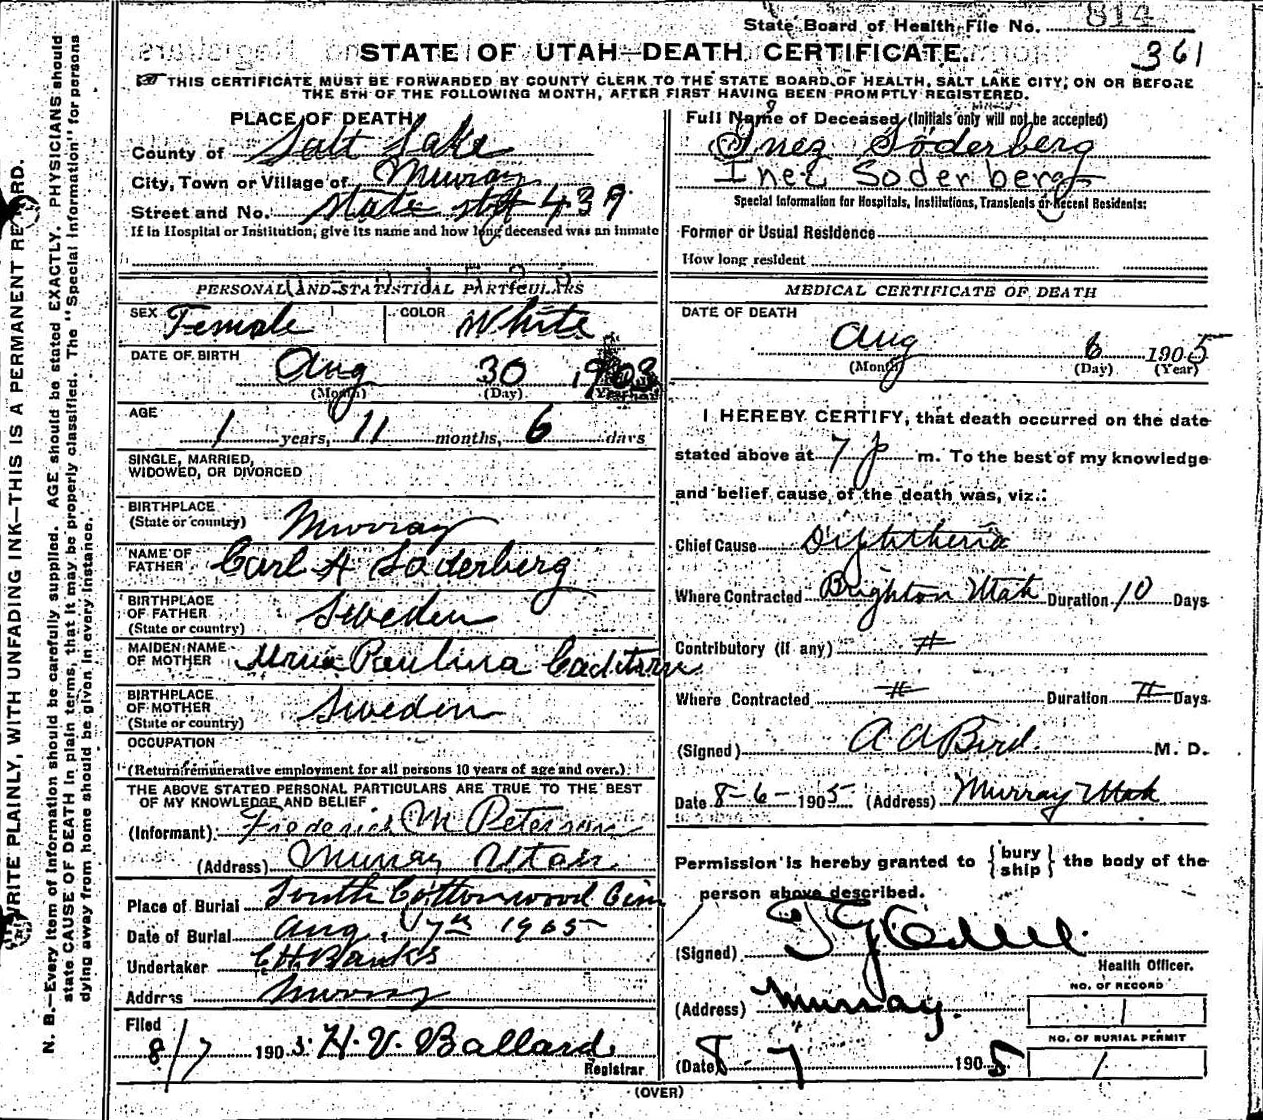 State Board of Health File No. 814
361
STATE OF UTAH—DEATH CERTIFICATE.
THIS CERTIFICATE MUST BE FORWARDED BY COUNTY CLERK TO THE STATE BOARD OF HEALTH, SALT LAKE CITY, ON OR BEFORE
THE 5TH OF THE FOLLOWING MONTH, AFTER FIRST HAVING BEEN PROMPTLY REGISTERED.
N. B.—Every item of information should be carefully supplied. AGE should be stated EXACTLY. PHYSICIANS should
state CAUSE OF DEATH in plain terms, that it may be properly classified. The "Special Information" for persons
dying away from home should be given in every instance.
WRITE PLAINLY, WITH UNFADING INK—THIS IS A PERMANENT RECORD.
PLACE OF DEATH
County of Salt Lake
City, Town or Village of Murray
Street and No. State 439
If in Hospital or Institution, give its name and how long deceased was an inmate
PERSONAL AND STATISTICAL PARTICULARS
SEX Female COLOR White
DATE OF BIRTH Aug 30 1903
(Month) (Day) (Year)
AGE
1 years, 11 months, 6 days
SINGLE, MARRIED,
WIDOWED, OR DIVORCED
BIRTHPLACE
(State or country) Murray
NAME OF
FATHER Carl A Soderberg
BIRTHPLACE
OF FATHER
(State or country) Sweden
MAIDEN NAME
OF MOTHER Paulina
BIRTHPLACE
OF MOTHER
(State or country) Sweden
OCCUPATION
(Return remunerative employment for all persons 10 years of age and over.)
THE ABOVE STATED PERSONAL PARTICULARS ARE TRUE TO THE BEST
OF MY KNOWLEDGE AND BELIEF
(Informant) Frederick M Peterson
(Address) Murray Utah
Place of Burial South Cottonwood Cem
Date of Burial Aug 7th 1905
Undertaker C H Banks
Address Murray
Filed
8/7 1905 H. V. Ballard
Registrar
Full Name of Deceased (Initials only will not be accepted)
Inez Söderberg
Inez Soderberg
Special Information for Hospitals, Institutions, Transients or Recent Residents:
Former or Usual Residence
How long resident
MEDICAL CERTIFICATE OF DEATH
DATE OF DEATH
Aug 6 1905
(Month) (Day) (Year)
I HEREBY CERTIFY, that death occurred on the date
stated above at 7 p m. To the best of my knowledge
and belief cause of the death was, viz.:
Chief Cause Diphtheria
Where Contracted Brighton Utah Duration 10 Days
Contributory (if any) #
Where Contracted # Duration # Days
(Signed) A A Bird M. D.
Date 8-6-1905 (Address) Murray Utah
Permission is hereby granted to {bury ship} the body of the
person above described.
(Signed)
Health Officer.
(Address) Murray.
NO. OF RECORD
NO. OF BURIAL PERMIT
(Date) 8 7 1905
(OVER)